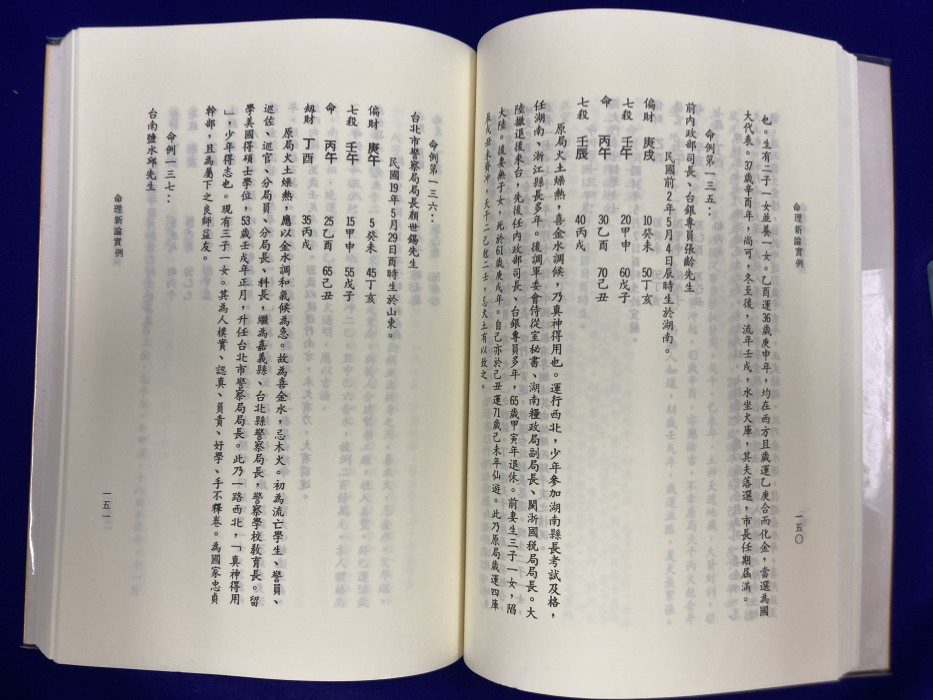 命理新論實例
一五〇
也。生有二子一女並養一女。乙酉運36歲庚申年，均在西方且歲運乙庚合而化金，當選為國
大代表。37歲辛酉年，尚可，冬至後，流年壬戌，水坐火庫，其夫落選，市長任期屆滿。
命例第一三五：
前內政部司長、台銀專員張齡先生
民國前2年5月4日辰時生於湖南。
偏財 庚戌 10癸未 50丁亥
七殺 壬午 20甲申 60戊子
命 丙午 30乙酉 70己丑
七殺 壬辰 40丙戌
原局火土燥熱，喜金水調候，乃真神得用也。運行西北，少年參加湖南縣長考試及格，
任湖南、浙江縣長多年。後調軍委會侍從室秘書、湖南糧政局副局長、閩浙國稅局局長。大
陸撤退後來台，先後任內政部司長、台銀專員多年，65歲甲寅年退休。前妻生三子一女，陷
大陸。後妻無子女，死於61歲庚戌年。自己亦於己丑運71歲己未年仙遊。此乃原局歲運四庫
辰戌丑未齊沖，天干二己剋二壬，忌火土有以致之。
命例第一三六：
台北市警察局局長顏世錫先生
民國19年5月29日酉時生於山東。
偏財 庚午 5癸未 45丁亥
七殺 壬午 15甲申 55戊子
命 丙午 25乙酉 65己丑
劫財 丁酉 35丙戌
原局火土燥熱，應以金水調和氣候為急。故為喜金水，忌木火。初為流亡學生、警員、
巡佐、巡官、分局員、分局長、科長，繼為嘉義縣、台北縣警察局長，警察學校教育長。留
學美國得碩士學位，53歲壬戌年正月，升任台北市警察局局長。此乃一路西北，「真神得用
」，少年得志也。現有三子一女。其為人樸實、認真、負責、好學、手不釋卷。為國家忠貞
幹部，且為屬下之良師益友。
命例一三七：
台南鹽水邱先生
命理新論實例
一五一